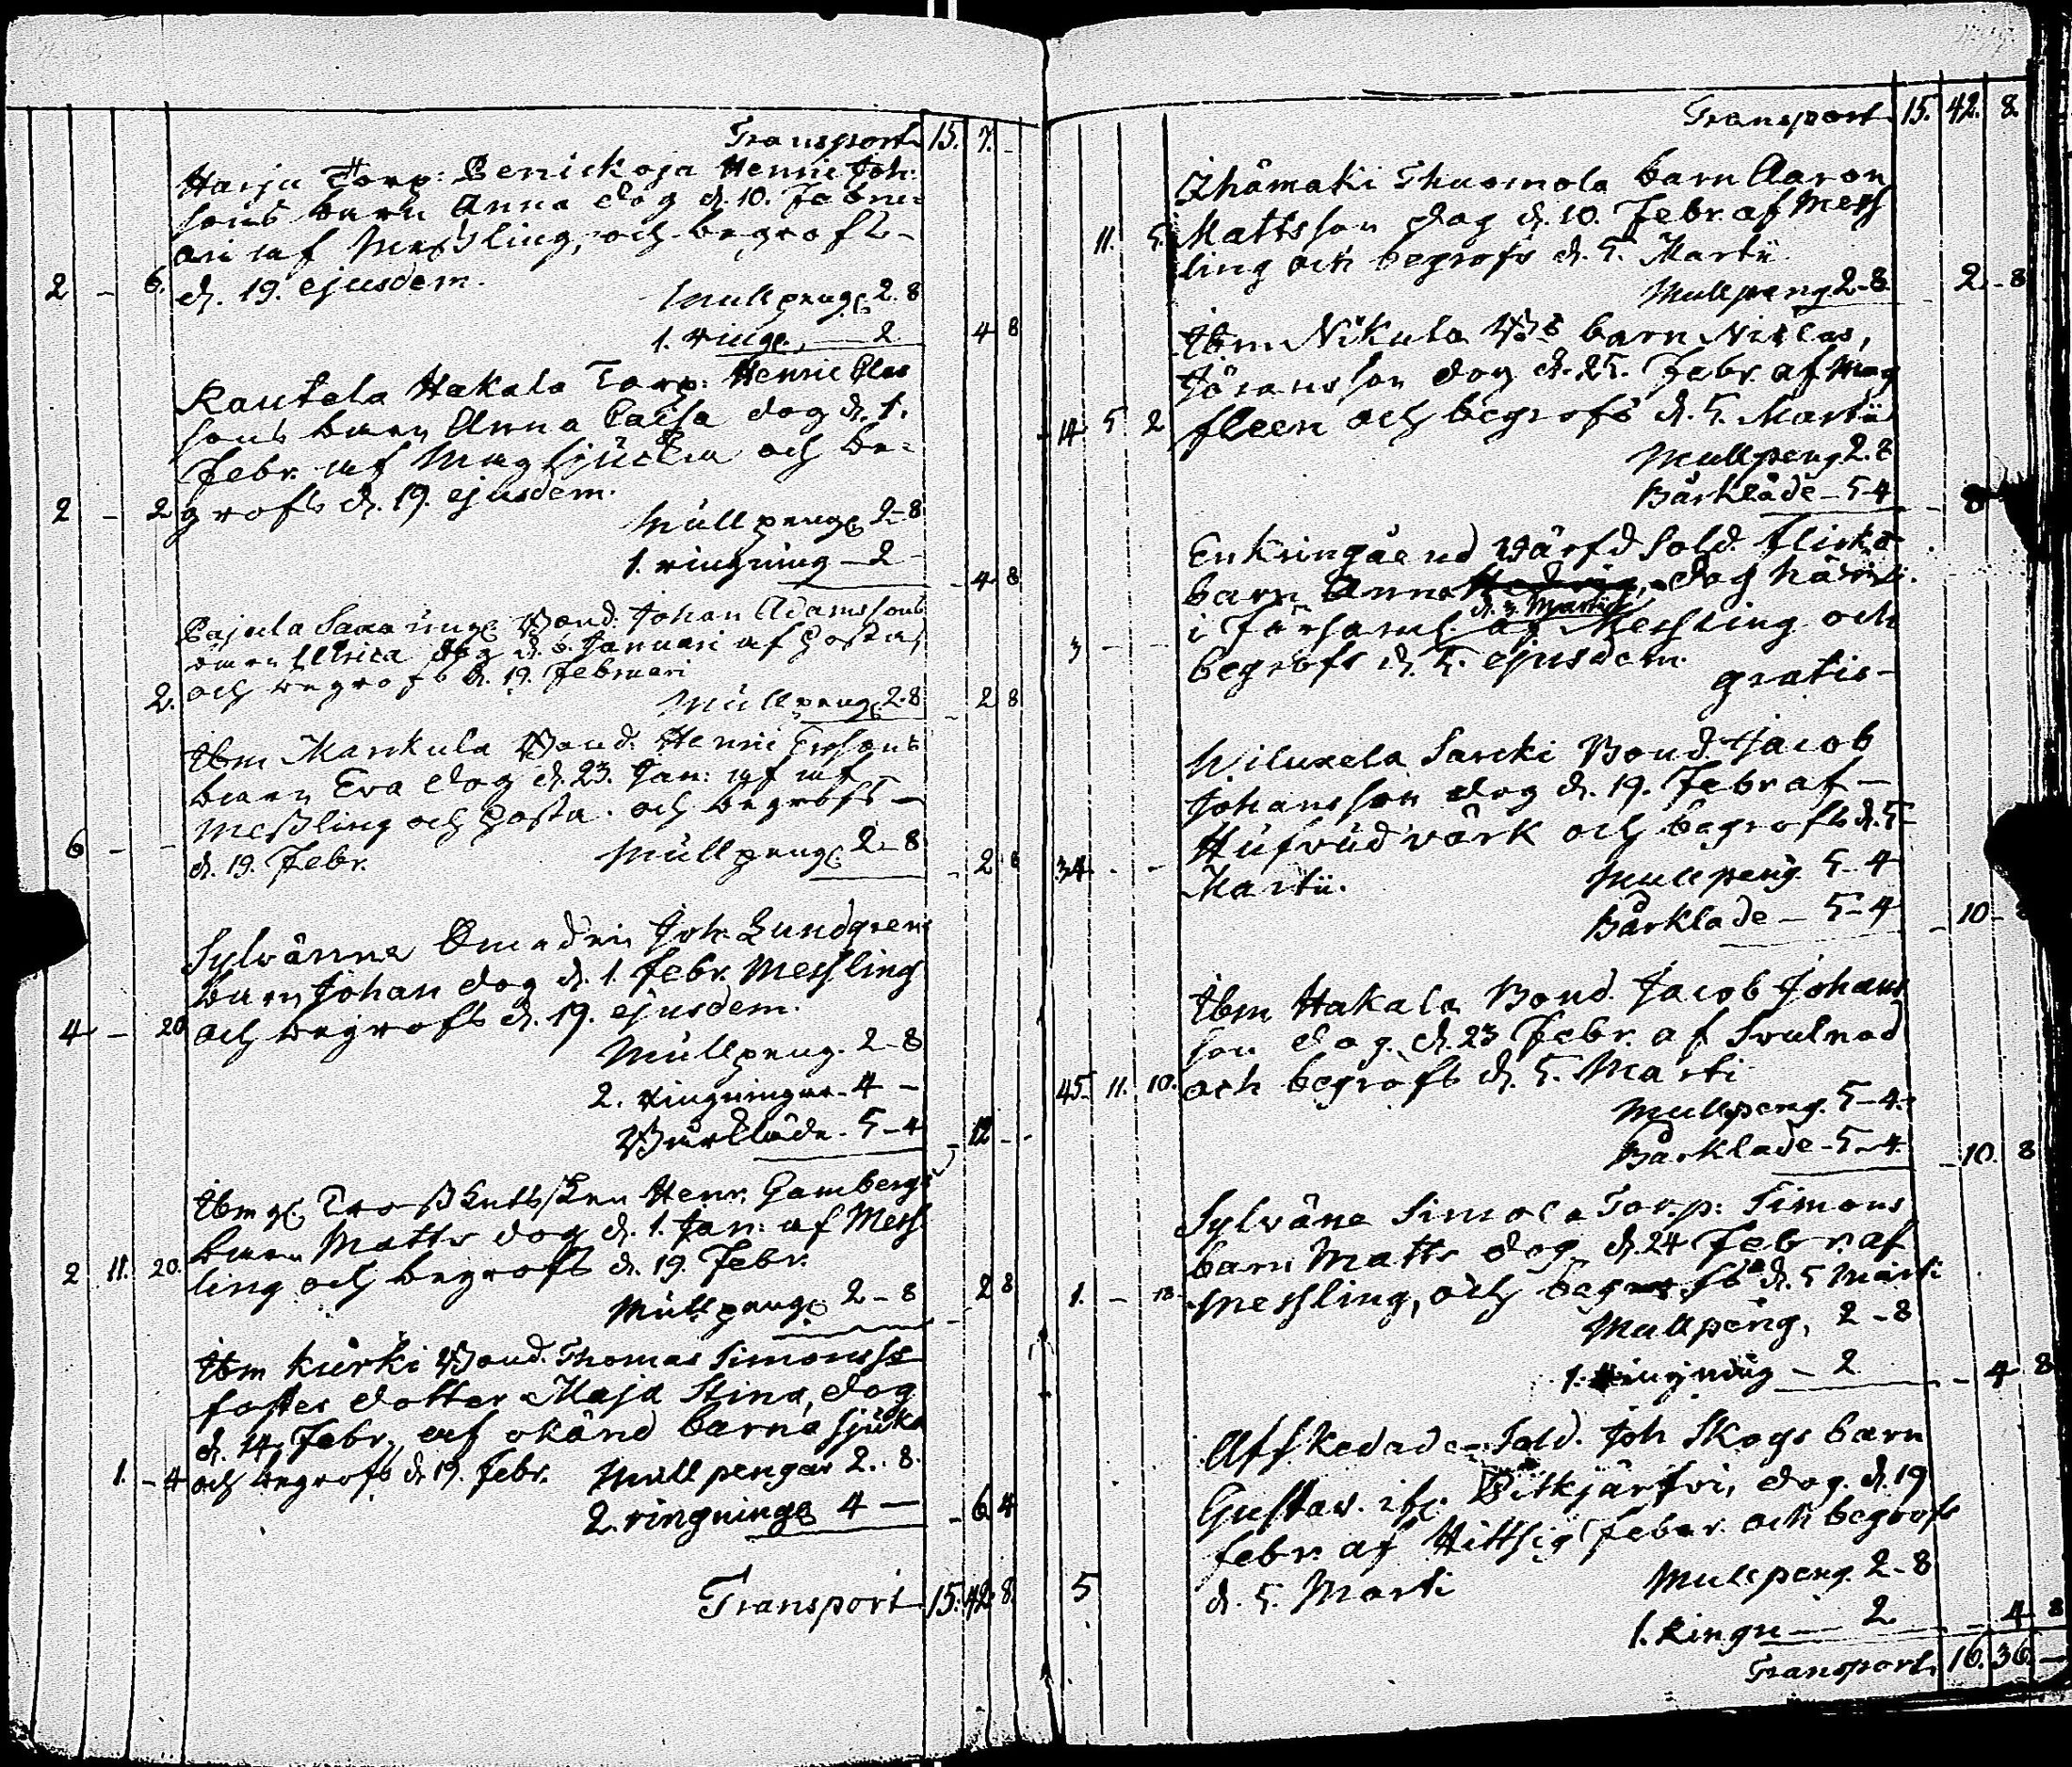 Transport 15. 7. -
Harju Torp: Penickoja Henric Joh:
sons barn Anna dog d. 10. Febru=
ari af Messling, och begrofs -
2 - 6. d. 19. ejusdem.
Mull peng. 2.8
1. ringn. — 2. 4 8
Rautela Hakala Torp. Henric Clas
sons barn Anna Caisa dog d. 1.
Febr. af Magsjucka och be=
2 - 2 grofs d. 19. ejusdem.
Mull peng. 2-8
1. ringning - 2 -
- 4 8
Pajula Saxa Bond. Johan Adamssons
barn Ulrica dog d. 6. Januari af Hosta,
2. och begrofs d. 19. Februari
Mull peng. 2.8 - 2 8
Ibm Markula Bond. Henric Ersons
barn Eva dog d. 23. Jan: af af -
Messling och Hosta. och begrofs -
6 - - d. 19. Febr. Mull peng. 2-8
- 2 8
Sylvänne Joh. Lundgrens
barn Johan dog d. 1. Febr. Messling
4 - 20 och begrofs d. 19. ejusdem.
Mull peng. 2-8
2. ringningar. 4 -
Bårkläde. 5-4 - 12 - -
Ibm Henr. Gambergs
barn Matts dog d. 1. Jan: af Mess
2 11. 20. ling och begrofs d. 19. Febr.
Mull peng. 2-8 - 2 8
Ibm Kurki Bond. Thomas Simonss
foster dotter Maja Stina, dog
d. 14. Febr. af okänd barna sjuka
1. - 4 och begrofs d. 19. Febr. Mull pengar 2.. 8.
2. ringning. 4 — - 6 4
Transport 15. 42. 8.
Transport 15. 42. 8.
Ihämaki Thuomola barn Aaron
11. 5. Mattsson dog d. 10. Febr. af Mess
ling och begrofs d. 5. Martii
Mullpeng 2-8. - 2 - 8
Ibm Nikula Bds barn Niclas,
Göransson dog d. 25. Febr. af Mag
14 5 2 fleen och begrofs d. 5. Martii
Mullpeng. 2.8
Bårkläde - 5-4 - 8
Enkingåend Värfd Sold. Flinks
barn Anna dog härst.
d. 3. Martii
3 - - i Församl. af Messling och
begrofs d. 5. ejusdem.
gratis -
Wiluxela Sarcki Bond. Jacob
Johansson dog d. 19. Febr af -
Hufvudvärk och begrofs d. 5
34. - - Martii. Mull peng. 5-4
Bårkläde - 5-4 - 10 -
Ibm Hakala Bond. Jacob Johans
son dog. d. 23 Febr. af Svulnad
45. 11. 10. och begrofs d. 5. Marti
Mullpeng. 5-4.
Bårkläde - 5-4 - 10. 8
Sylväne Simola Torp: Simons
barn Matts dog d. 24 Febr. af
1. - 18. messling, och begrofs d. 5 Marti
Mullpeng, 2-8
1. ringning - 2 - 4 8
Afskedade Sold. Joh Skogs barn
Gustav. Pitkjärfvi, dog. d. 19
febr. af Hittsig feber. och begrofs
5 d. 5. Marti Mullpeng. 2-8
1. Ringn — 2 - 4 8
Transport. 16. 36. -